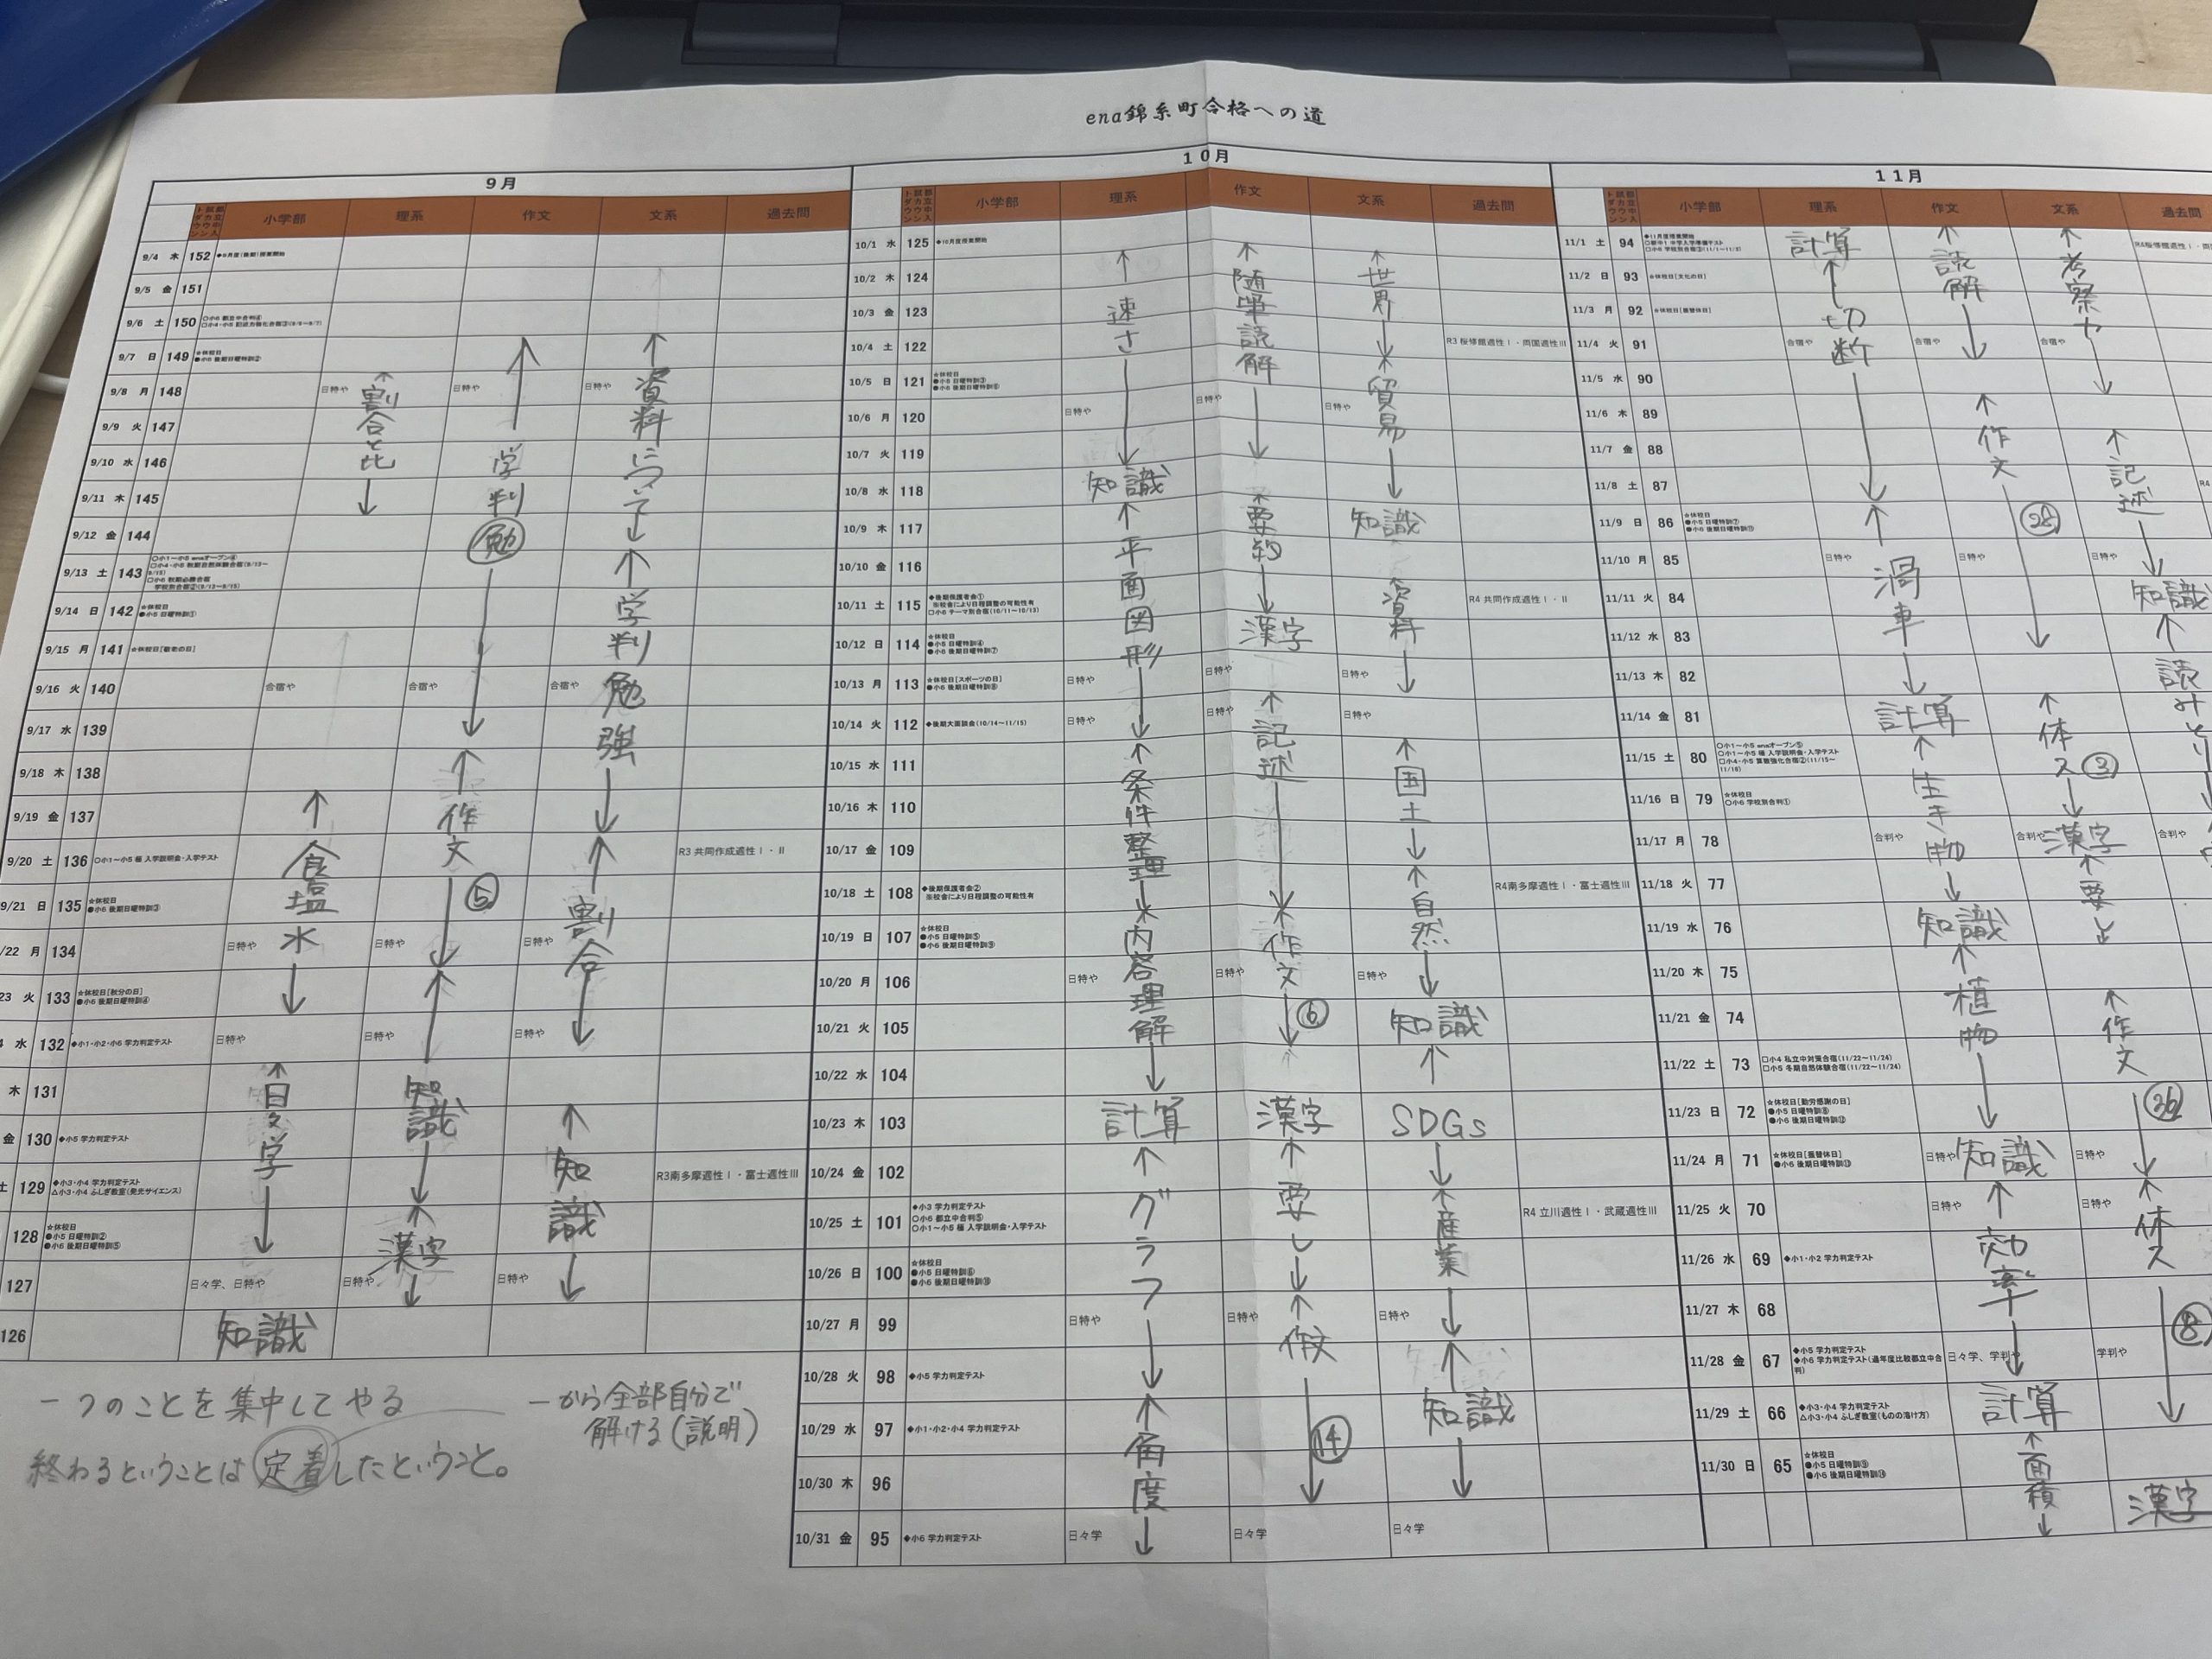 ena錦糸町合格への道
9月
小学部 理系 作文 文系 過去問
9/4 木 152
9/5 金 151
9/6 土 150 ○小6 都立中合判④
9/7 日 149 ☆休校日
●小6 後期日曜特訓②
9/8 月 148 日特や 日特や 日特や
9/9 火 147
9/10 水 146
9/11 木 145
9/12 金 144
9/13 土 143
9/14 日 142 ☆休校日
●小5 日曜特訓①
9/15 月 141 ☆休校日[敬老の日]
9/16 火 140 合宿や 合宿や 合宿や
9/17 水 139
9/18 木 138
9/19 金 137
9/20 土 136 ○小1~小5 極 入学説明会・入学テスト R3 共同作成適性Ⅰ・Ⅱ
9/21 日 135 ☆休校日
●小6 後期日曜特訓③
/22 月 134 日特や 日特や 日特や
23 火 133 ☆休校日[秋分の日]
●小6 後期日曜特訓④
水 132 ◆小1・小2・小6 学力判定テスト 日特や 日特や 日特や
木 131
金 130 ◆小5 学力判定テスト
土 129 ◆小3・小4 学力判定テスト R3南多摩適性Ⅰ・富士適性Ⅲ
△小3・小4 ふしぎ教室(発光サイエンス)
128 ☆休校日
●小5 日曜特訓②
●小6 後期日曜特訓⑤
127 日々学、日特や 日特や 日特や
126
割合と比
食塩水
日々学
知識
学判勉
作文 ⑤
知識
漢字
資料について
学判勉強
割合
知識
一つのことを集中してやる
一から全部自分で
解ける(説明)
終わるということは定着したということ。
10月
小学部 理系 作文 文系 過去問
10/1 水 125 ◆10月度授業開始
10/2 木 124
10/3 金 123
10/4 土 122 R3 桜修館適性Ⅰ・両国適性Ⅲ
10/5 日 121 ☆休校日
●小5 日曜特訓③
●小6 後期日曜特訓⑥
10/6 月 120 日特や 日特や 日特や
10/7 火 119
10/8 水 118
10/9 木 117
10/10 金 116
10/11 土 115 ◆後期保護者会① R4 共同作成適性Ⅰ・Ⅱ
※校舎により日程調整の可能性有
□小6 テーマ別合宿(10/11~10/13)
10/12 日 114 ☆休校日
●小5 日曜特訓④
●小6 後期日曜特訓⑦
10/13 月 113 ☆休校日[スポーツの日] 日特や 日特や 日特や
●小6 後期日曜特訓⑧
10/14 火 112 ◆後期大面談会(10/14~11/15) 日特や 日特や 日特や
10/15 水 111
10/16 木 110
10/17 金 109
10/18 土 108 ◆後期保護者会② R4南多摩適性Ⅰ・富士適性Ⅲ
※校舎により日程調整の可能性有
10/19 日 107 ☆休校日
●小5 日曜特訓⑤
●小6 後期日曜特訓⑨
10/20 月 106 日特や 日特や 日特や
10/21 火 105
10/22 水 104
10/23 木 103
10/24 金 102
10/25 土 101 ◆小3 学力判定テスト R4 立川適性Ⅰ・武蔵適性Ⅲ
○小6 都立中合判⑤
○小1~小5 極 入学説明会・入学テスト
10/26 日 100 ☆休校日
●小5 日曜特訓⑥
●小6 後期日曜特訓⑩
10/27 月 99 日特や 日特や 日特や
10/28 火 98 ◆小5 学力判定テスト
10/29 水 97 ◆小1・小2・小4 学力判定テスト
10/30 木 96
10/31 金 95 ◆小6 学力判定テスト 日々学 日々学 日々学
速さ
知識
平面図形
条件整理
内容理解
計算
グラフ
角度
随筆読解
要約
漢字
記述
作文 ⑥
漢字
要し
作文 ⑭
世界
貿易
知識
資料
国土
自然
知識
SDGs
産業
知識
11月
小学部 理系 作文 文系 過去問
11/1 土 94 ◆11月度授業開始
11/2 日 93 ☆休校日[文化の日]
11/3 月 92 ☆休校日[振替休日]
11/4 火 91 合宿や 合宿や 合宿や
11/5 水 90
11/6 木 89
11/7 金 88
11/8 土 87 R4
11/9 日 86 ☆休校日
●小5 日曜特訓⑦
●小6 後期日曜特訓⑪
11/10 月 85 日特や 日特や 日特や
11/11 火 84
11/12 水 83
11/13 木 82
11/14 金 81
11/15 土 80 ○小1~小5 enaオープン⑤
○小1~小5 極 入学説明会・入学テスト
□小4・小5 算数強化合宿②(11/15~
11/16)
11/16 日 79 ☆休校日
○小6 学校別合判①
11/17 月 78 合判や 合判や 合判や
11/18 火 77
11/19 水 76
11/20 木 75
11/21 金 74
11/22 土 73 □小4 私立中対策合宿(11/22~11/24)
□小5 冬期自然体験合宿(11/22~11/24)
11/23 日 72 ☆休校日[勤労感謝の日]
●小5 日曜特訓⑧
●小6 後期日曜特訓⑫
11/24 月 71 ☆休校日[振替休日] 日特や 日特や
●小6 後期日曜特訓⑬
11/25 火 70 日特や 日特や
11/26 水 69 ◆小1・小2 学力判定テスト
11/27 木 68
11/28 金 67 ◆小5 学力判定テスト 日々学、学判や 学判や
11/29 土 66 ◆小3・小4 学力判定テスト
△小3・小4 ふしぎ教室(ものの溶け方)
11/30 日 65 ☆休校日
●小5 日曜特訓⑨
●小6 後期日曜特訓⑭
計算
切断
渦車
計算
生き物
知識
植物
知識
効率
計算
面積
読解
作文 ㉘
体ス ③
漢字
要と
作文 ㊱
体ス ⑧
漢字
考察や
記述
知識
読みとり